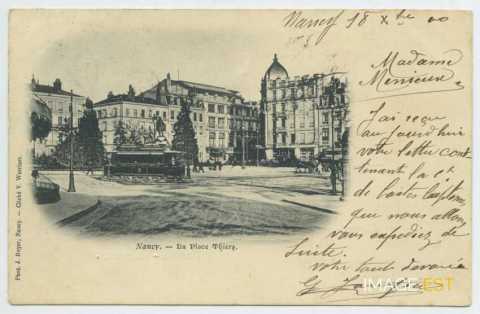 Nancy 18 Xbre 00
Madame
Menieux.
J'ai reçu
aujourd'hui
votre lettre con
tenant la
de cartes
que nous allons
vous expédier de
suite.
votre tout dévouée
Nancy. — La Place Thiers.
Phot. J. Royer, Nancy. — Cliché V. Wattier.
IMAGE'EST